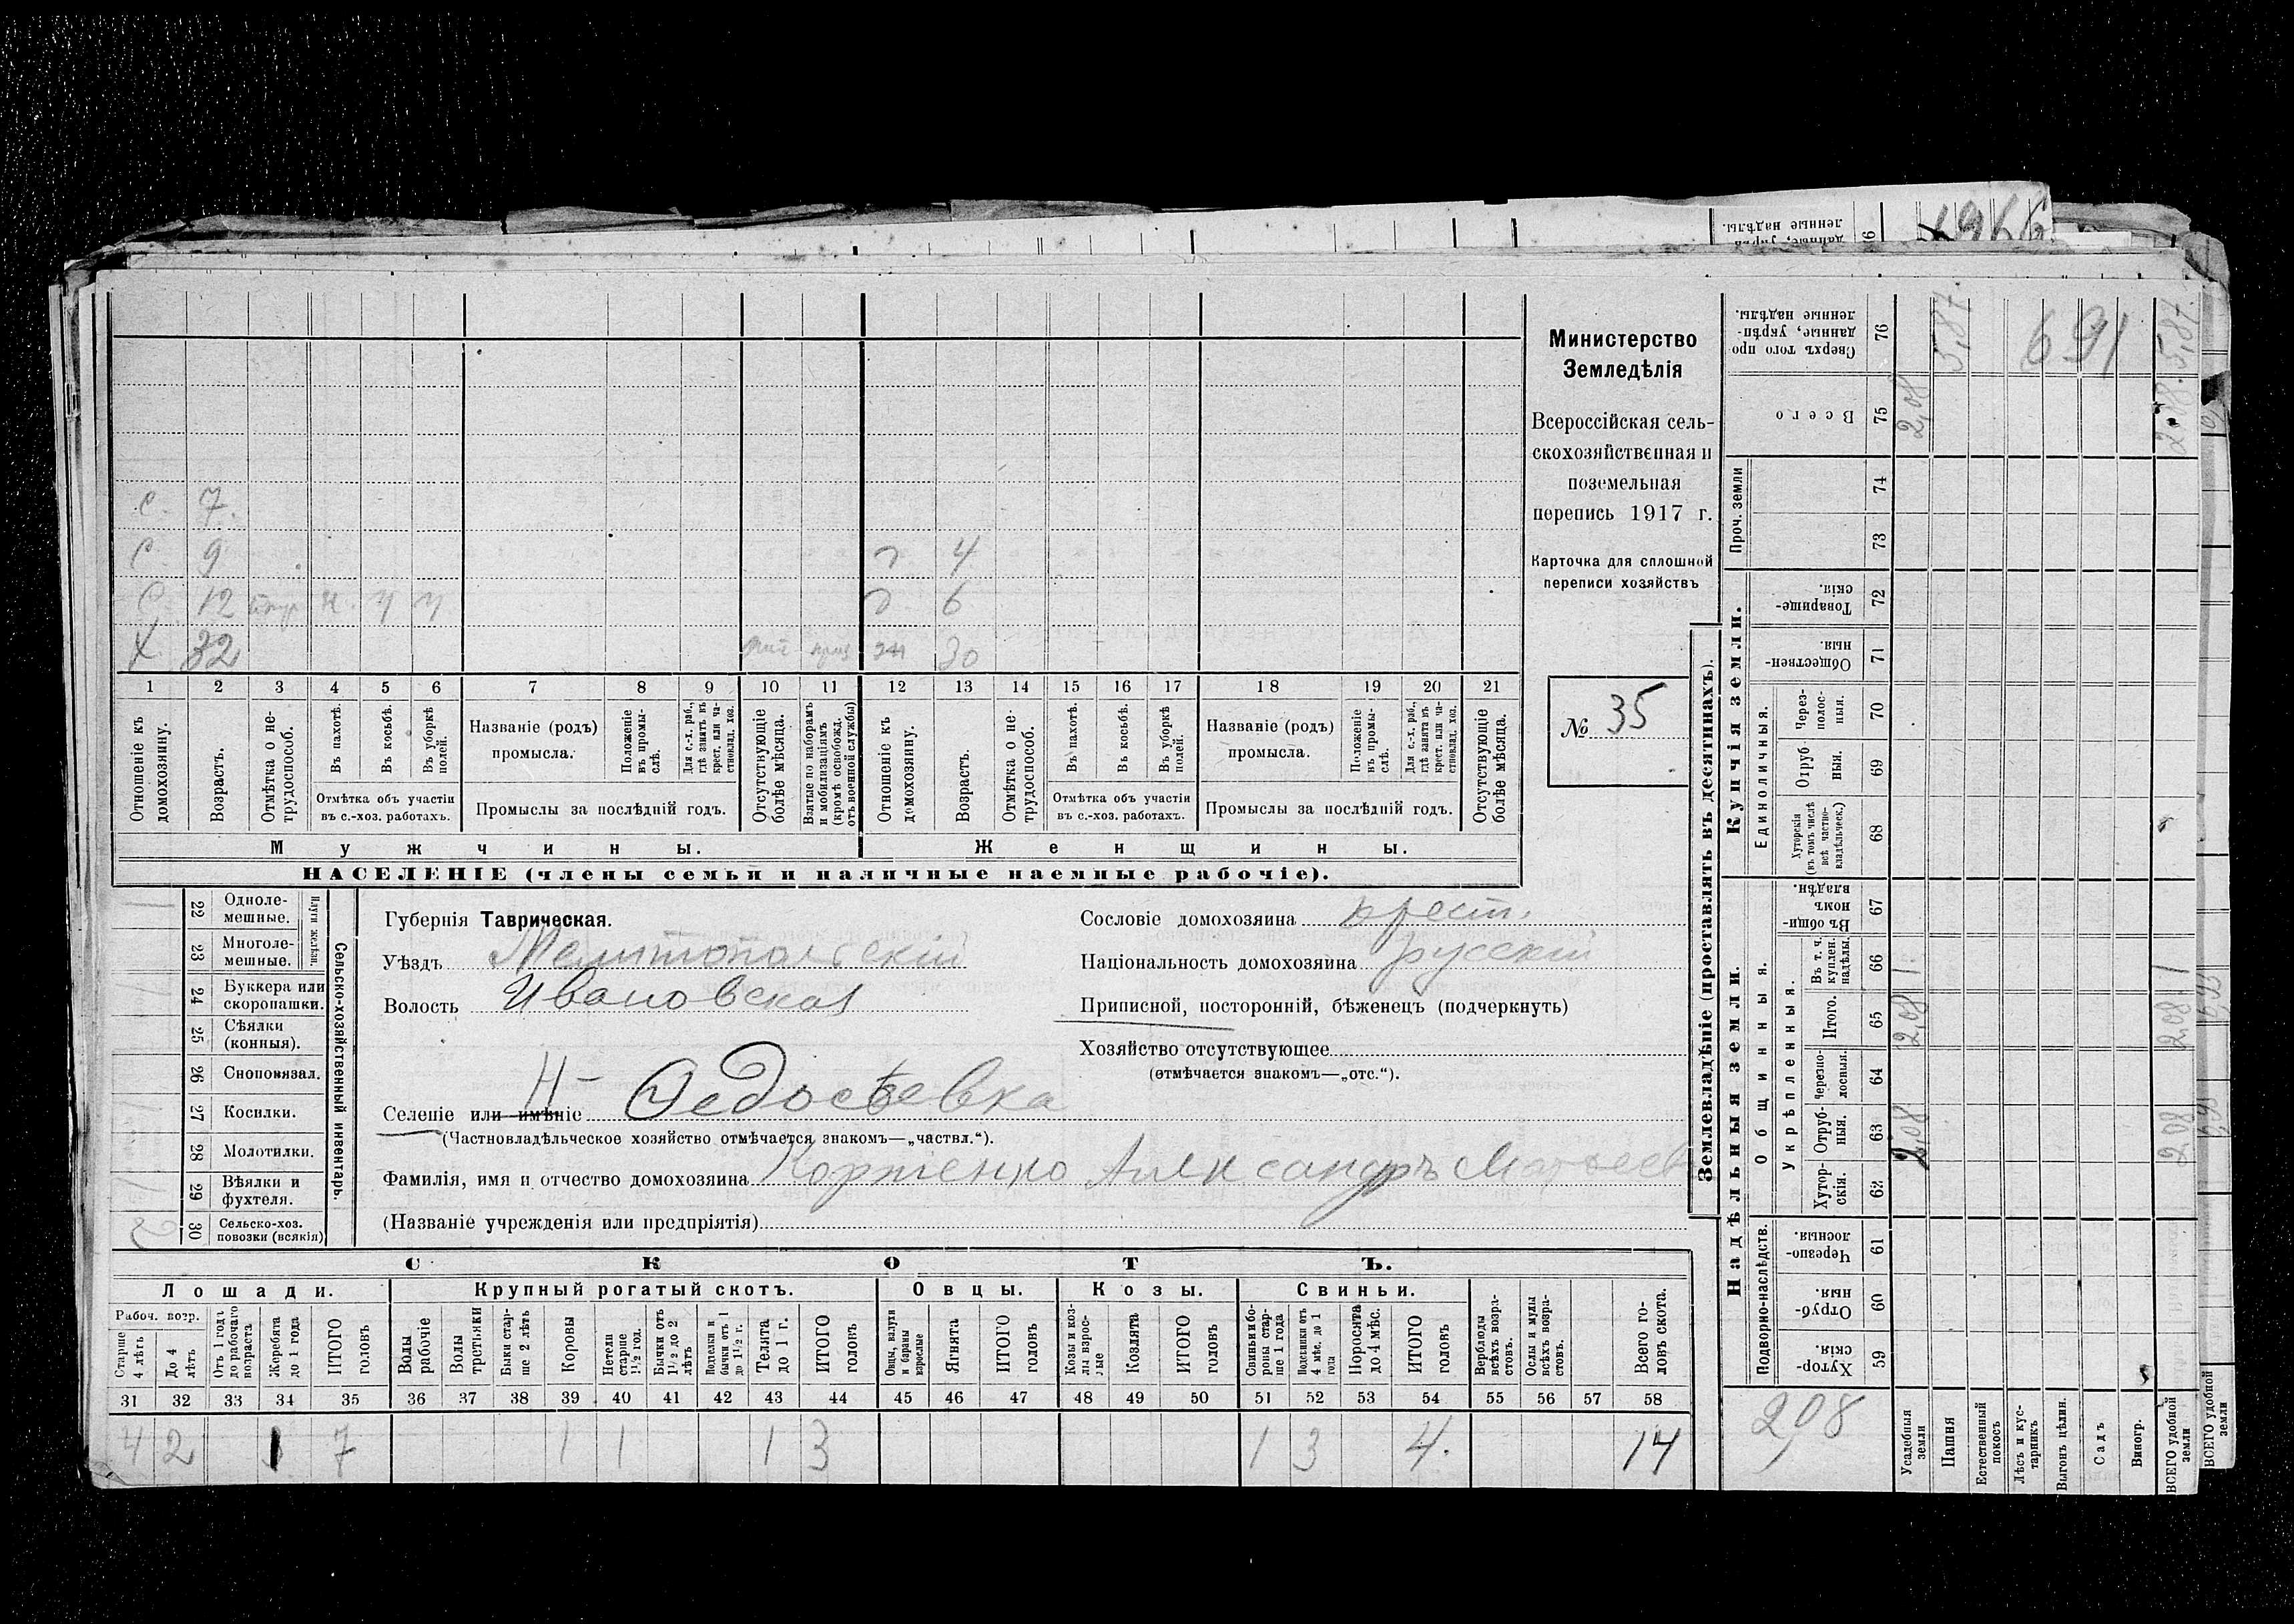 с. 7.
с. 9 д 4
с. 12 н. д 6
х 32 30
1 2 3 4 5 6 7 8 9 10 11 12 13 14 15 16 17 18 19 20 21
Отношеніе къ домохозяину.
Возрастъ.
Отмѣтка о нетрудоспособ.
Въ пахотѣ.
Въ косьбѣ.
Въ уборкѣ полей.
Отмѣтка объ участіи
въ с.-хоз. работахъ.
Названіе (родъ)
промысла.
Положеніе въ промыслѣ.
Для с.-х. раб., гдѣ занятъ въ крест. или частновлад. хоз.
Промыслы за послѣдній годъ.
Отсутствующіе болѣе мѣсяца.
Взятые по наборамъ и мобилизаціямъ (кромѣ освобожд. отъ военной службы)
Отношеніе къ домохозяину.
Возрастъ.
Отмѣтка о нетрудоспособ.
Въ пахотѣ.
Въ косьбѣ.
Въ уборкѣ полей.
Отмѣтка объ участіи
въ с.-хоз. работахъ.
Названіе (родъ)
промысла.
Положеніе въ промыслѣ.
Для с.-х. раб., гдѣ занята въ крест. или частновлад. хоз.
Промыслы за послѣдній годъ.
Отсутствующіе болѣе мѣсяца.
Мужчины. Женщины.
НАСЕЛЕНІЕ (члены семьи и наличные наемные рабочіе).
Министерство
Земледѣлія
Всероссійская сель-
скохозяйственная и
поземельная
перепись 1917 г.
Карточка для сплошной
переписи хозяйствъ
№ 35
22 Одноле-
мешные.
23 Многоле-
мешные.
Плуги желѣзн.
24 Буккера или
скоропашки.
25 Сѣялки
(конныя).
26 Сноповязал.
27 Косилки.
28 Молотилки.
29 Вѣялки и
фухтеля.
30 Сельско-хоз.
повозки (всякія)
Сельско-хозяйственный инвентарь.
Губернія Таврическая.
Уѣздъ Мелитопольскій
Волость Ивановская
Селеніе или имѣніе Н-Федосѣевка
(Частновладѣльческое хозяйство отмѣчается знакомъ—„частвл.“).
Фамилія, имя и отчество домохозяина Корніенко Александръ
(Названіе учрежденія или предпріятія)
Сословіе домохозяина крест.
Національность домохозяина русскій
Приписной, посторонній, бѣженецъ (подчеркнуть)
Хозяйство отсутствующее
(отмѣчается знакомъ—„отс.“).
СКОТЪ.
Лошади. Крупный рогатый скотъ. Овцы. Козы. Свиньи.
Рабоч. возр.
Старше 4 лѣтъ
До 4 лѣтъ
Отъ 1 года до рабочаго возраста
Жеребята до 1 года
ИТОГО головъ
Волы рабочіе
Волы третьяки
Быки старше 2 лѣтъ
Коровы
Нетели старше 1½ год.
Бычки отъ 1½ до 2 лѣтъ
Подтелки и бычки отъ 1 до 1½ г.
Телята до 1 г.
ИТОГО головъ
Овцы, валухи и бараны взрослые
Ягнята
ИТОГО головъ
Козы и козлы взрослые
Козлята
ИТОГО головъ
Свиньи и боровы старше 1 года
Подсвинки отъ 4 мѣс. до 1 года
Поросята до 4 мѣс.
ИТОГО головъ
Верблюды всѣхъ возрастовъ.
Ослы и мулы всѣхъ возрастовъ.
Всего головъ скота.
31 32 33 34 35 36 37 38 39 40 41 42 43 44 45 46 47 48 49 50 51 52 53 54 55 56 57 58
4 2 1 7 1 1 1 3 1 3 4. 14
Землевладѣніе (проставлять въ десятинахъ).
Надѣльныя земли.
Купчія земли.
Проч. земли
Подворно-наслѣдств.
Общинныя.
Укрѣпленныя.
Единоличныя.
Хутор-
скія. 59
Отруб-
ныя. 60
Черезпо-
лосныя. 61
Хутор-
скія. 62
Отруб-
ныя. 63 2,08
Черезпо-
лосныя. 64
Итого. 65 2,08
Въ т. ч. куплен. надѣлы. 66
Въ общин-
номъ владѣн. 67
Хуторскія (въ томъ числѣ всѣ частновладѣльческ.) 68
Отруб-
ныя. 69
Через-
полос-
ныя. 70
Обществен-
ныя. 71
Товарище-
скія. 72
73
74
Всего 75 2,08
Сверхъ того про-
данные, укрѣп-
ленные надѣлы. 76
5,87
691
2,08
Усадебныя земли
Пашня
Естественный покосъ
Лѣсъ и кустарникъ
Выгонъ цѣлин.
Садъ
Виногр.
ВСЕГО удобной земли
ВСЕГО удобной земли